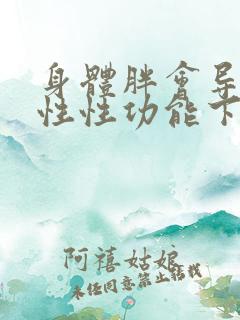 身體胖會导
性性功能下
阿禧姑娘
未经同意禁止转载